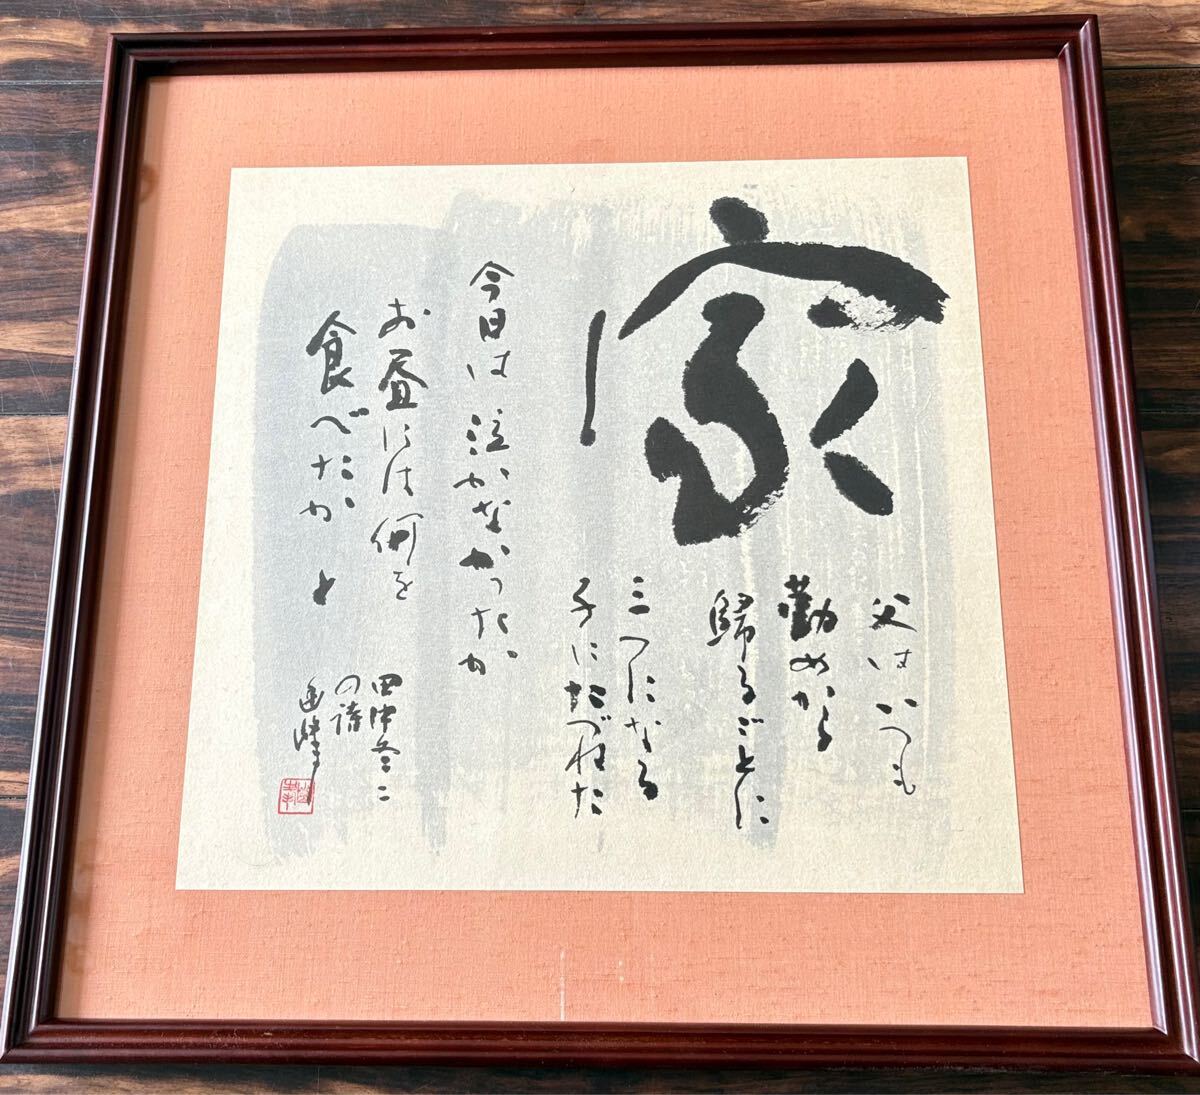 家
父はいつも
勤めから
歸るごとに
三つになる
子にたづねた
今日は泣かなかったか
お昼には何を
食べたかと
田中冬二
の詩